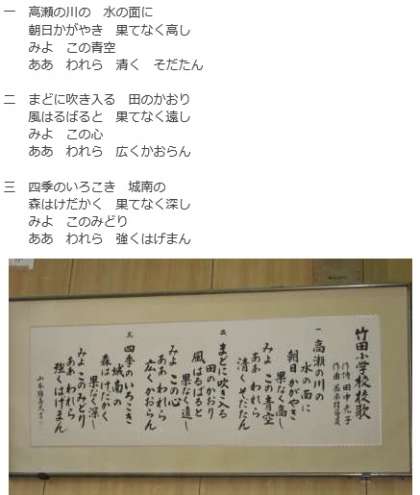 一 高瀬の川の 水の面に
朝日かがやき 果てなく高し
みよ この青空
ああ われら 清く そだたん
二 まどに吹き入る 田のかおり
風はるばると 果てなく遠し
みよ この心
ああ われら 広くかおらん
三 四季のいろこき 城南の
森はけだかく 果てなく深し
みよ このみどり
ああ われら 強くはげまん
竹田小学校校歌
作詩 田中光子
作曲
一 高瀬の川の
水の面に
朝日かがやき
果なく高し
みよ この青空
ああ われら
清く そだたん
二 まどに吹き入る
田のかおり
風はるばると
果なく遠し
みよ この心
ああ われら
広くかおらん
三 四季のいろこき
城南の
森はけだかく
果なく深し
みよ このみどり
ああ われら
強くはげまん